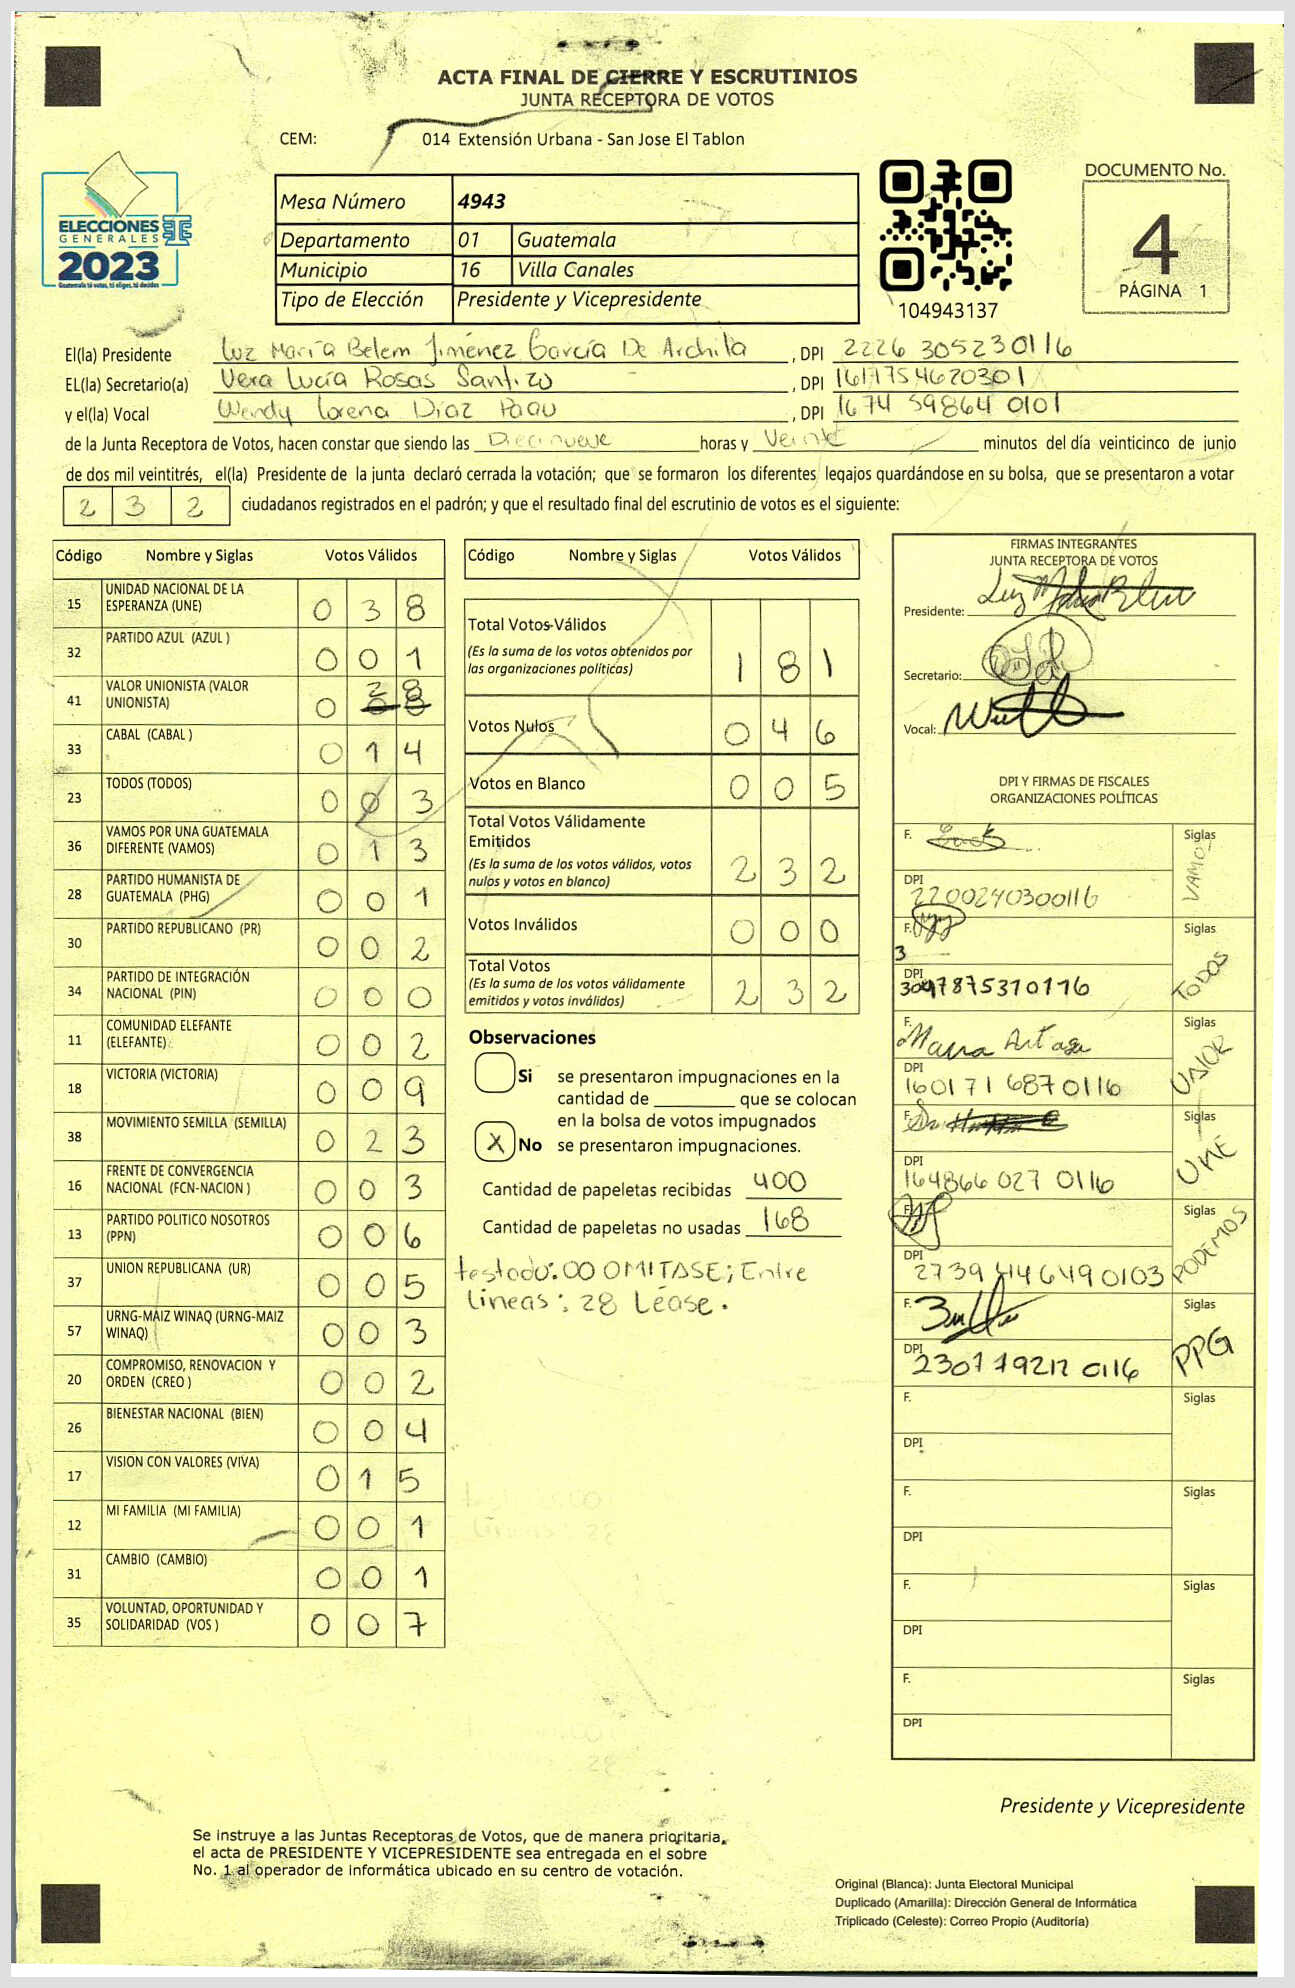 ACTA FINAL DE CIERRE Y ESCRUTINIOS
JUNTA RECEPTORA DE VOTOS
CEM: 014 Extensión Urbana - San Jose El Tablon
ELECCIONES
GENERALES
2023
Guatemala tú votas, tú eliges, tú decides
Mesa Número 4943
Departamento 01 Guatemala
Municipio 16 Villa Canales
Tipo de Elección Presidente y Vicepresidente
104943137
DOCUMENTO No.
4
PÁGINA 1
El(la) Presidente Luz María Belem Jiménez García De Archila , DPI 2226 305230116
EL(la) Secretario(a) Vera Lucía Rosas Santizo , DPI 1617754620301
y el(la) Vocal Wendy Lorena Díaz , DPI 1674 59864 0101
de la Junta Receptora de Votos, hacen constar que siendo las Diecinueve horas y Veinte minutos del día veinticinco de junio
de dos mil veintitrés, el(la) Presidente de la junta declaró cerrada la votación; que se formaron los diferentes legajos quardándose en su bolsa, que se presentaron a votar
2 3 2 ciudadanos registrados en el padrón; y que el resultado final del escrutinio de votos es el siguiente:
Código Nombre y Siglas Votos Válidos
15 UNIDAD NACIONAL DE LA ESPERANZA (UNE) 0 3 8
32 PARTIDO AZUL (AZUL ) 0 0 1
41 VALOR UNIONISTA (VALOR UNIONISTA) 0 2 8
33 CABAL (CABAL ) 0 1 4
23 TODOS (TODOS) 0 0 3
36 VAMOS POR UNA GUATEMALA DIFERENTE (VAMOS) 0 1 3
28 PARTIDO HUMANISTA DE GUATEMALA (PHG) 0 0 1
30 PARTIDO REPUBLICANO (PR) 0 0 2
34 PARTIDO DE INTEGRACIÓN NACIONAL (PIN) 0 0 0
11 COMUNIDAD ELEFANTE (ELEFANTE) 0 0 2
18 VICTORIA (VICTORIA) 0 0 9
38 MOVIMIENTO SEMILLA (SEMILLA) 0 2 3
16 FRENTE DE CONVERGENCIA NACIONAL (FCN-NACION ) 0 0 3
13 PARTIDO POLITICO NOSOTROS (PPN) 0 0 6
37 UNION REPUBLICANA (UR) 0 0 5
57 URNG-MAIZ WINAQ (URNG-MAIZ WINAQ) 0 0 3
20 COMPROMISO, RENOVACION Y ORDEN (CREO ) 0 0 2
26 BIENESTAR NACIONAL (BIEN) 0 0 4
17 VISION CON VALORES (VIVA) 0 1 5
12 MI FAMILIA (MI FAMILIA) 0 0 1
31 CAMBIO (CAMBIO) 0 0 1
35 VOLUNTAD, OPORTUNIDAD Y SOLIDARIDAD (VOS ) 0 0 7
Código Nombre y Siglas Votos Válidos
Total Votos Válidos 1 8 1
(Es la suma de los votos obtenidos por
las organizaciones políticas)
Votos Nulos 0 4 6
Votos en Blanco 0 0 5
Total Votos Válidamente
Emitidos 2 3 2
(Es la suma de los votos válidos, votos
nulos y votos en blanco)
Votos Inválidos 0 0 0
Total Votos 2 3 2
(Es la suma de los votos válidamente
emitidos y votos inválidos)
Observaciones
Si se presentaron impugnaciones en la
cantidad de ________ que se colocan
en la bolsa de votos impugnados
X No se presentaron impugnaciones.
Cantidad de papeletas recibidas 400
Cantidad de papeletas no usadas 168
testado: 00 OMITASE; Entre
lineas: 28 Léase.
FIRMAS INTEGRANTES
JUNTA RECEPTORA DE VOTOS
Presidente:
Secretario:
Vocal:
DPI Y FIRMAS DE FISCALES
ORGANIZACIONES POLÍTICAS
F. Siglas VAMOS
DPI 2200240300116
F. Siglas TODOS
3
DPI 3047875310116
F. Siglas VALOR
DPI 160171 6870116
F. Siglas UNE
DPI 164866 027 0116
F. Siglas PODEMOS
DPI 2739 446490103
F. Siglas PPG
DPI 2301 79217 0116
F. Siglas
DPI
F. Siglas
DPI
F. Siglas
DPI
F. Siglas
DPI
Presidente y Vicepresidente
Se instruye a las Juntas Receptoras de Votos, que de manera prioritaria,
el acta de PRESIDENTE Y VICEPRESIDENTE sea entregada en el sobre
No. 1 al operador de informática ubicado en su centro de votación.
Original (Blanca): Junta Electoral Municipal
Duplicado (Amarilla): Dirección General de Informática
Triplicado (Celeste): Correo Propio (Auditoría)